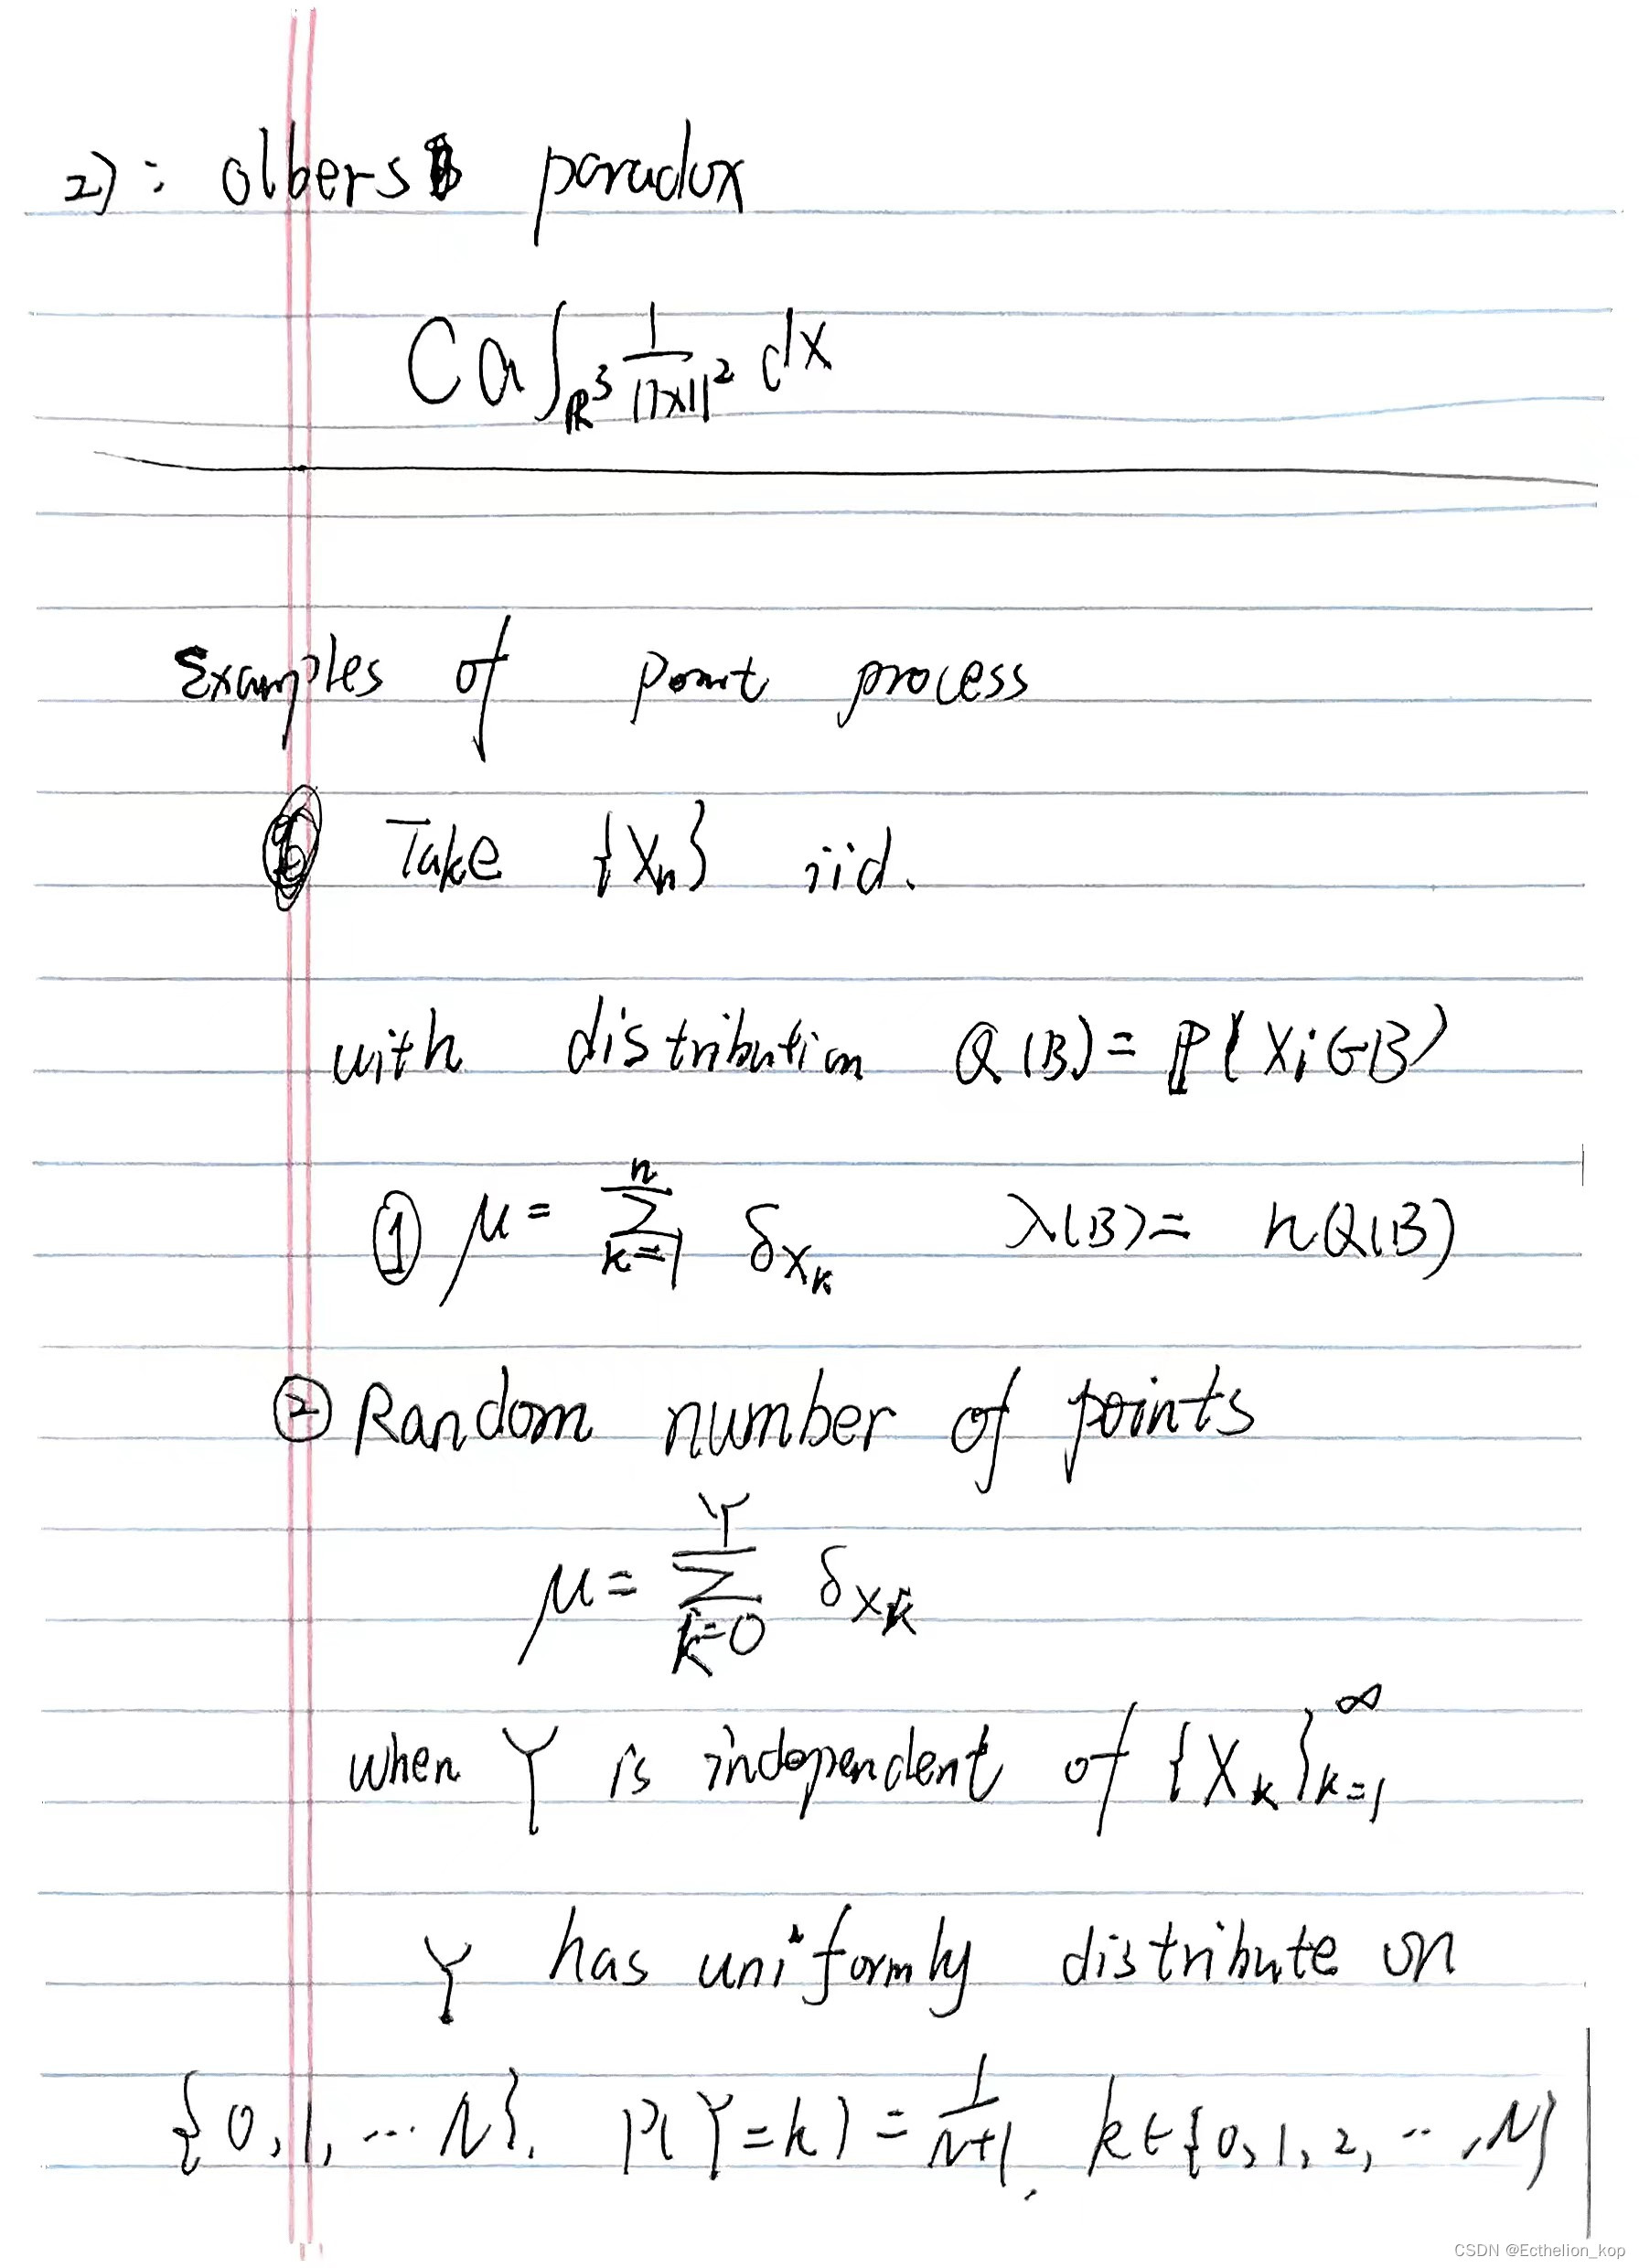 2): olbers paradox
Ca∫_{ℝ³} 1/||x||² dx
Examples of point process
Take {Xn} iid.
with distribution Q(B) = ℙ(Xi∈B)
① μ = ∑_{k=1}^{n} δ_{Xk} λ(B) = nQ(B)
② Random number of points
μ = ∑_{k=0}^{Y} δ_{Xk}
when Y is independent of {Xk}_{k=1}^{∞}
Y has uniformly distribute on
{0, 1, ... N}. P(Y=k) = 1/(N+1). k∈{0, 1, 2, ..., N}
CSDN @Ecthelion_kop